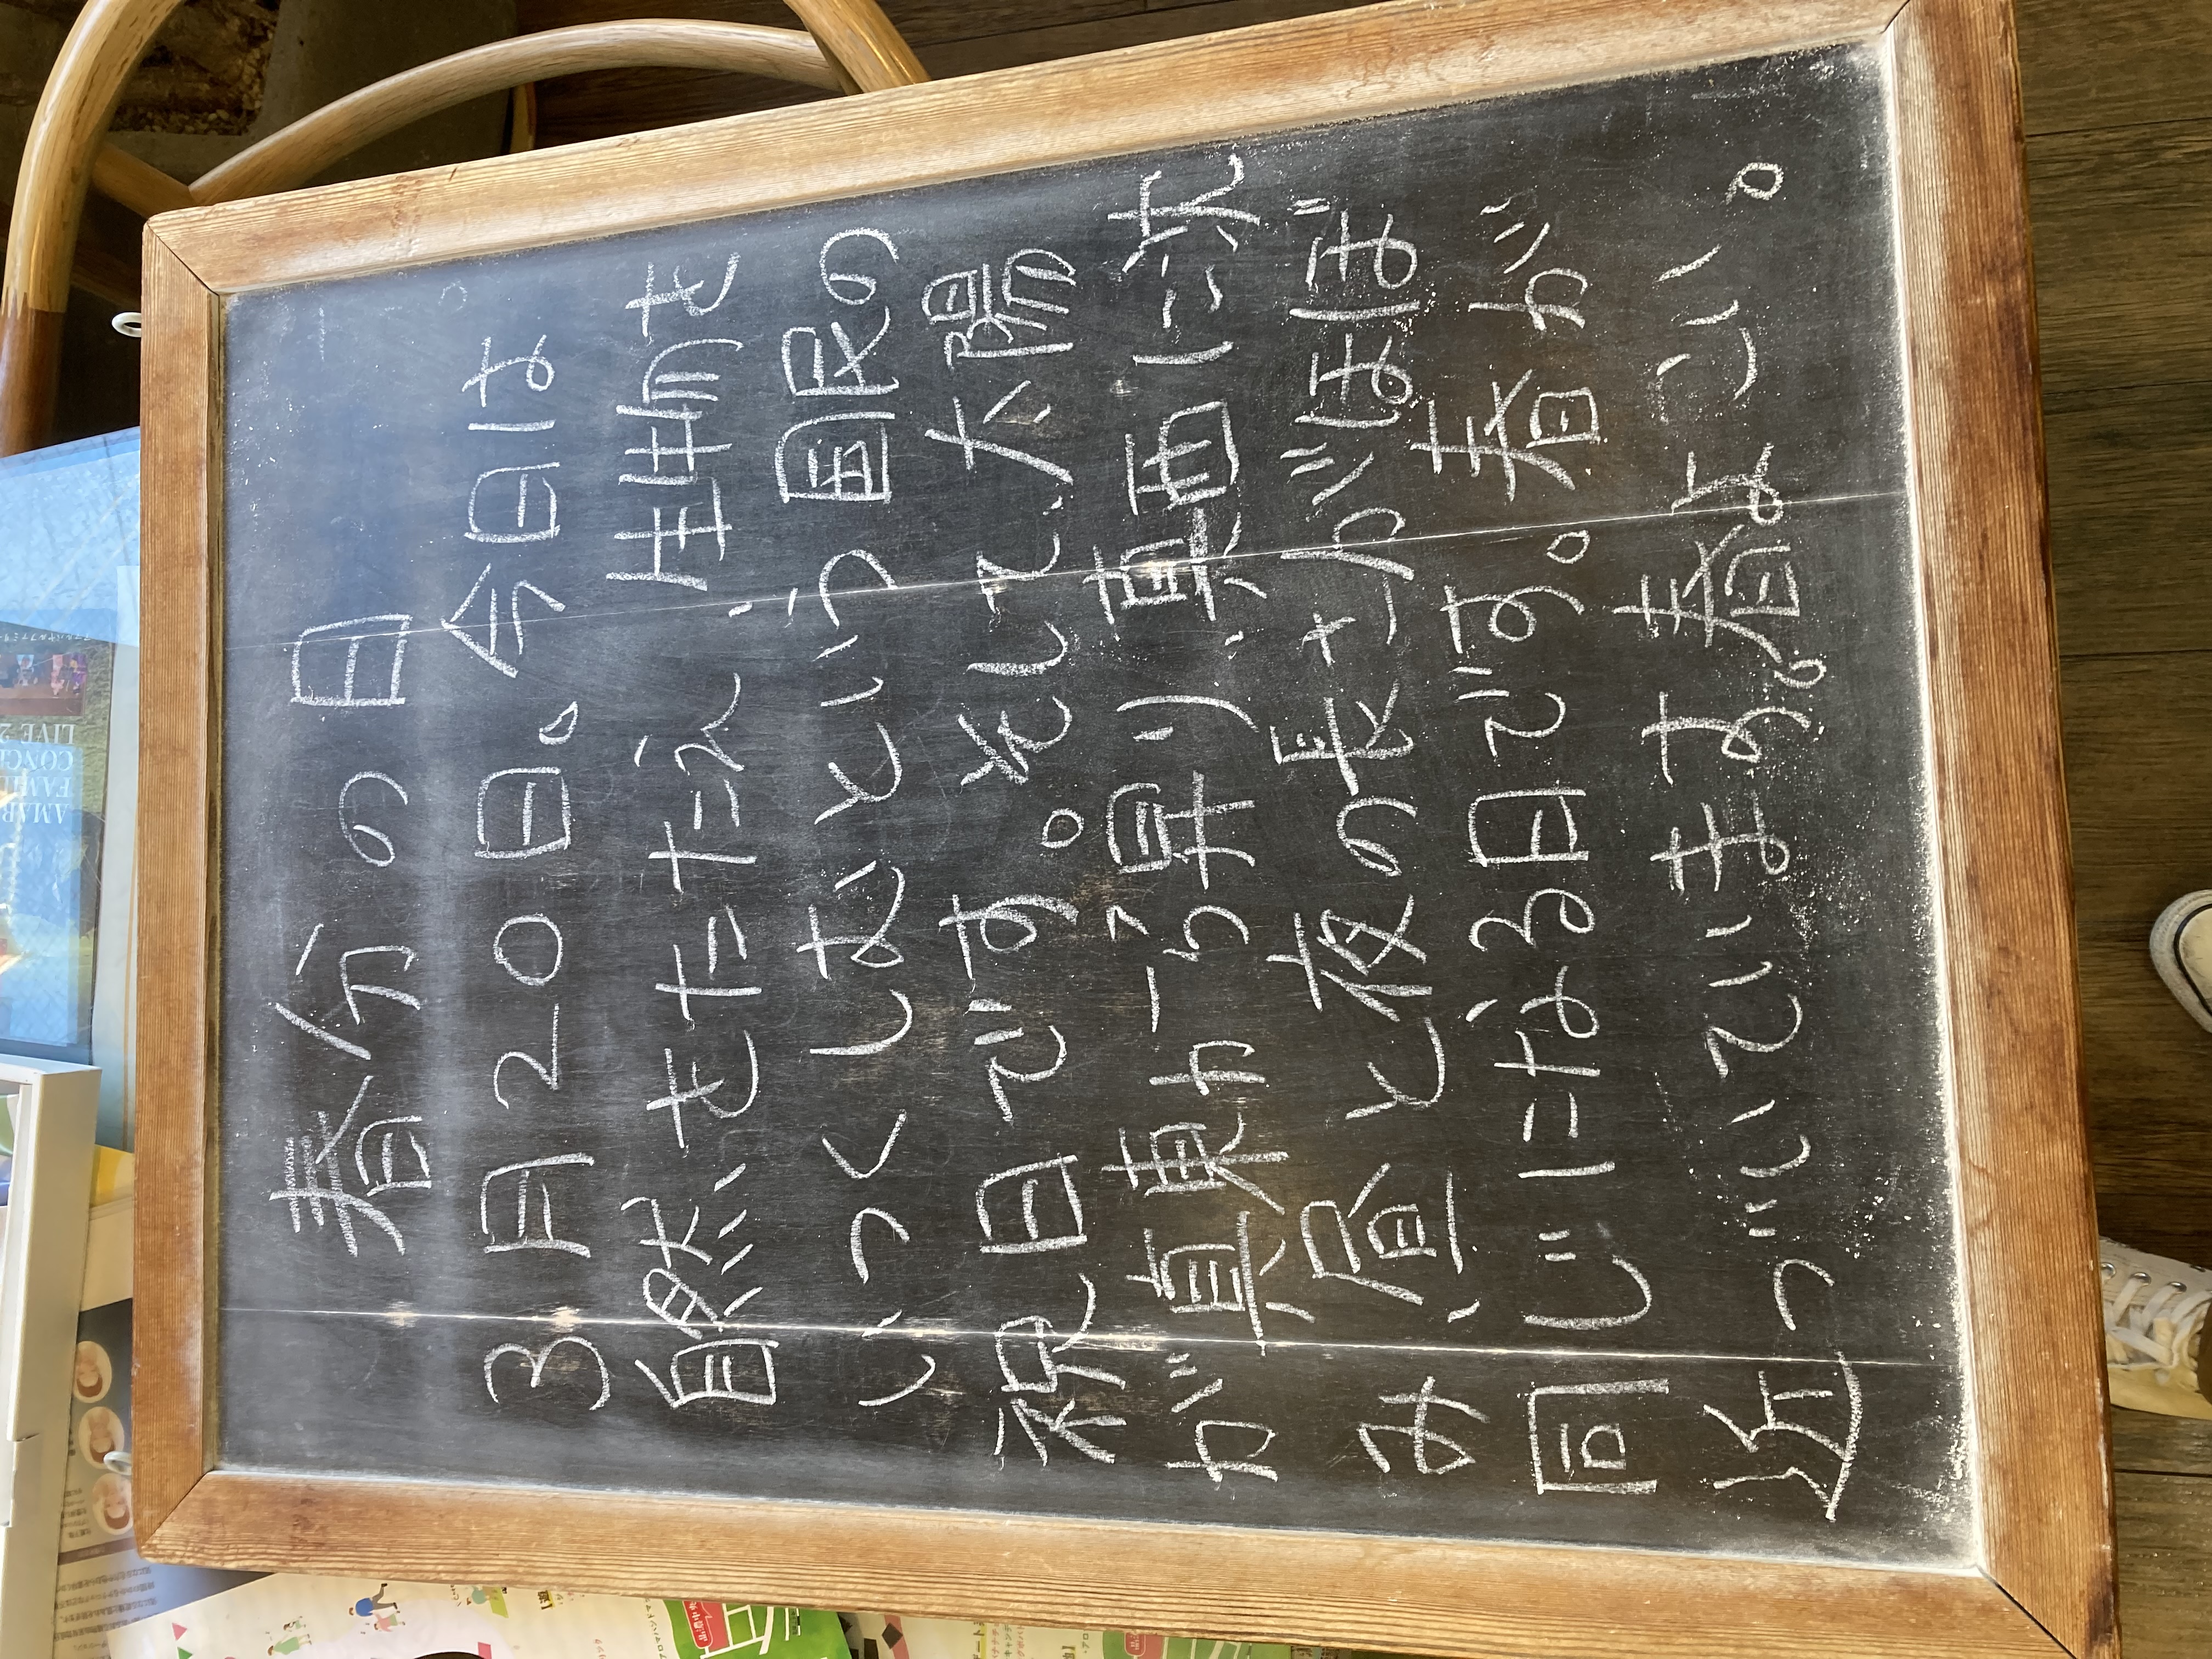 春分の日
3月20日、今日は
自然をたたえ、生物を
いつくしむという国民の
祝日です。そして、太陽
が真東から昇り、真西に沈
み、昼と夜の長さがほぼ
同じになる日です。春が
近づいています。春よこい。